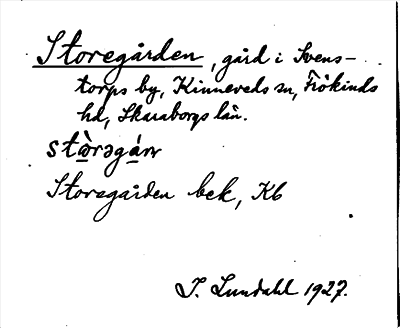 Storegården, gård i Svens-
torps by, Kinneveds sn, Frökinds
hd, Skaraborgs län.
stò̱rəgá̱ɳ
Storegården bek, Kb
I. Lundahl 1927.